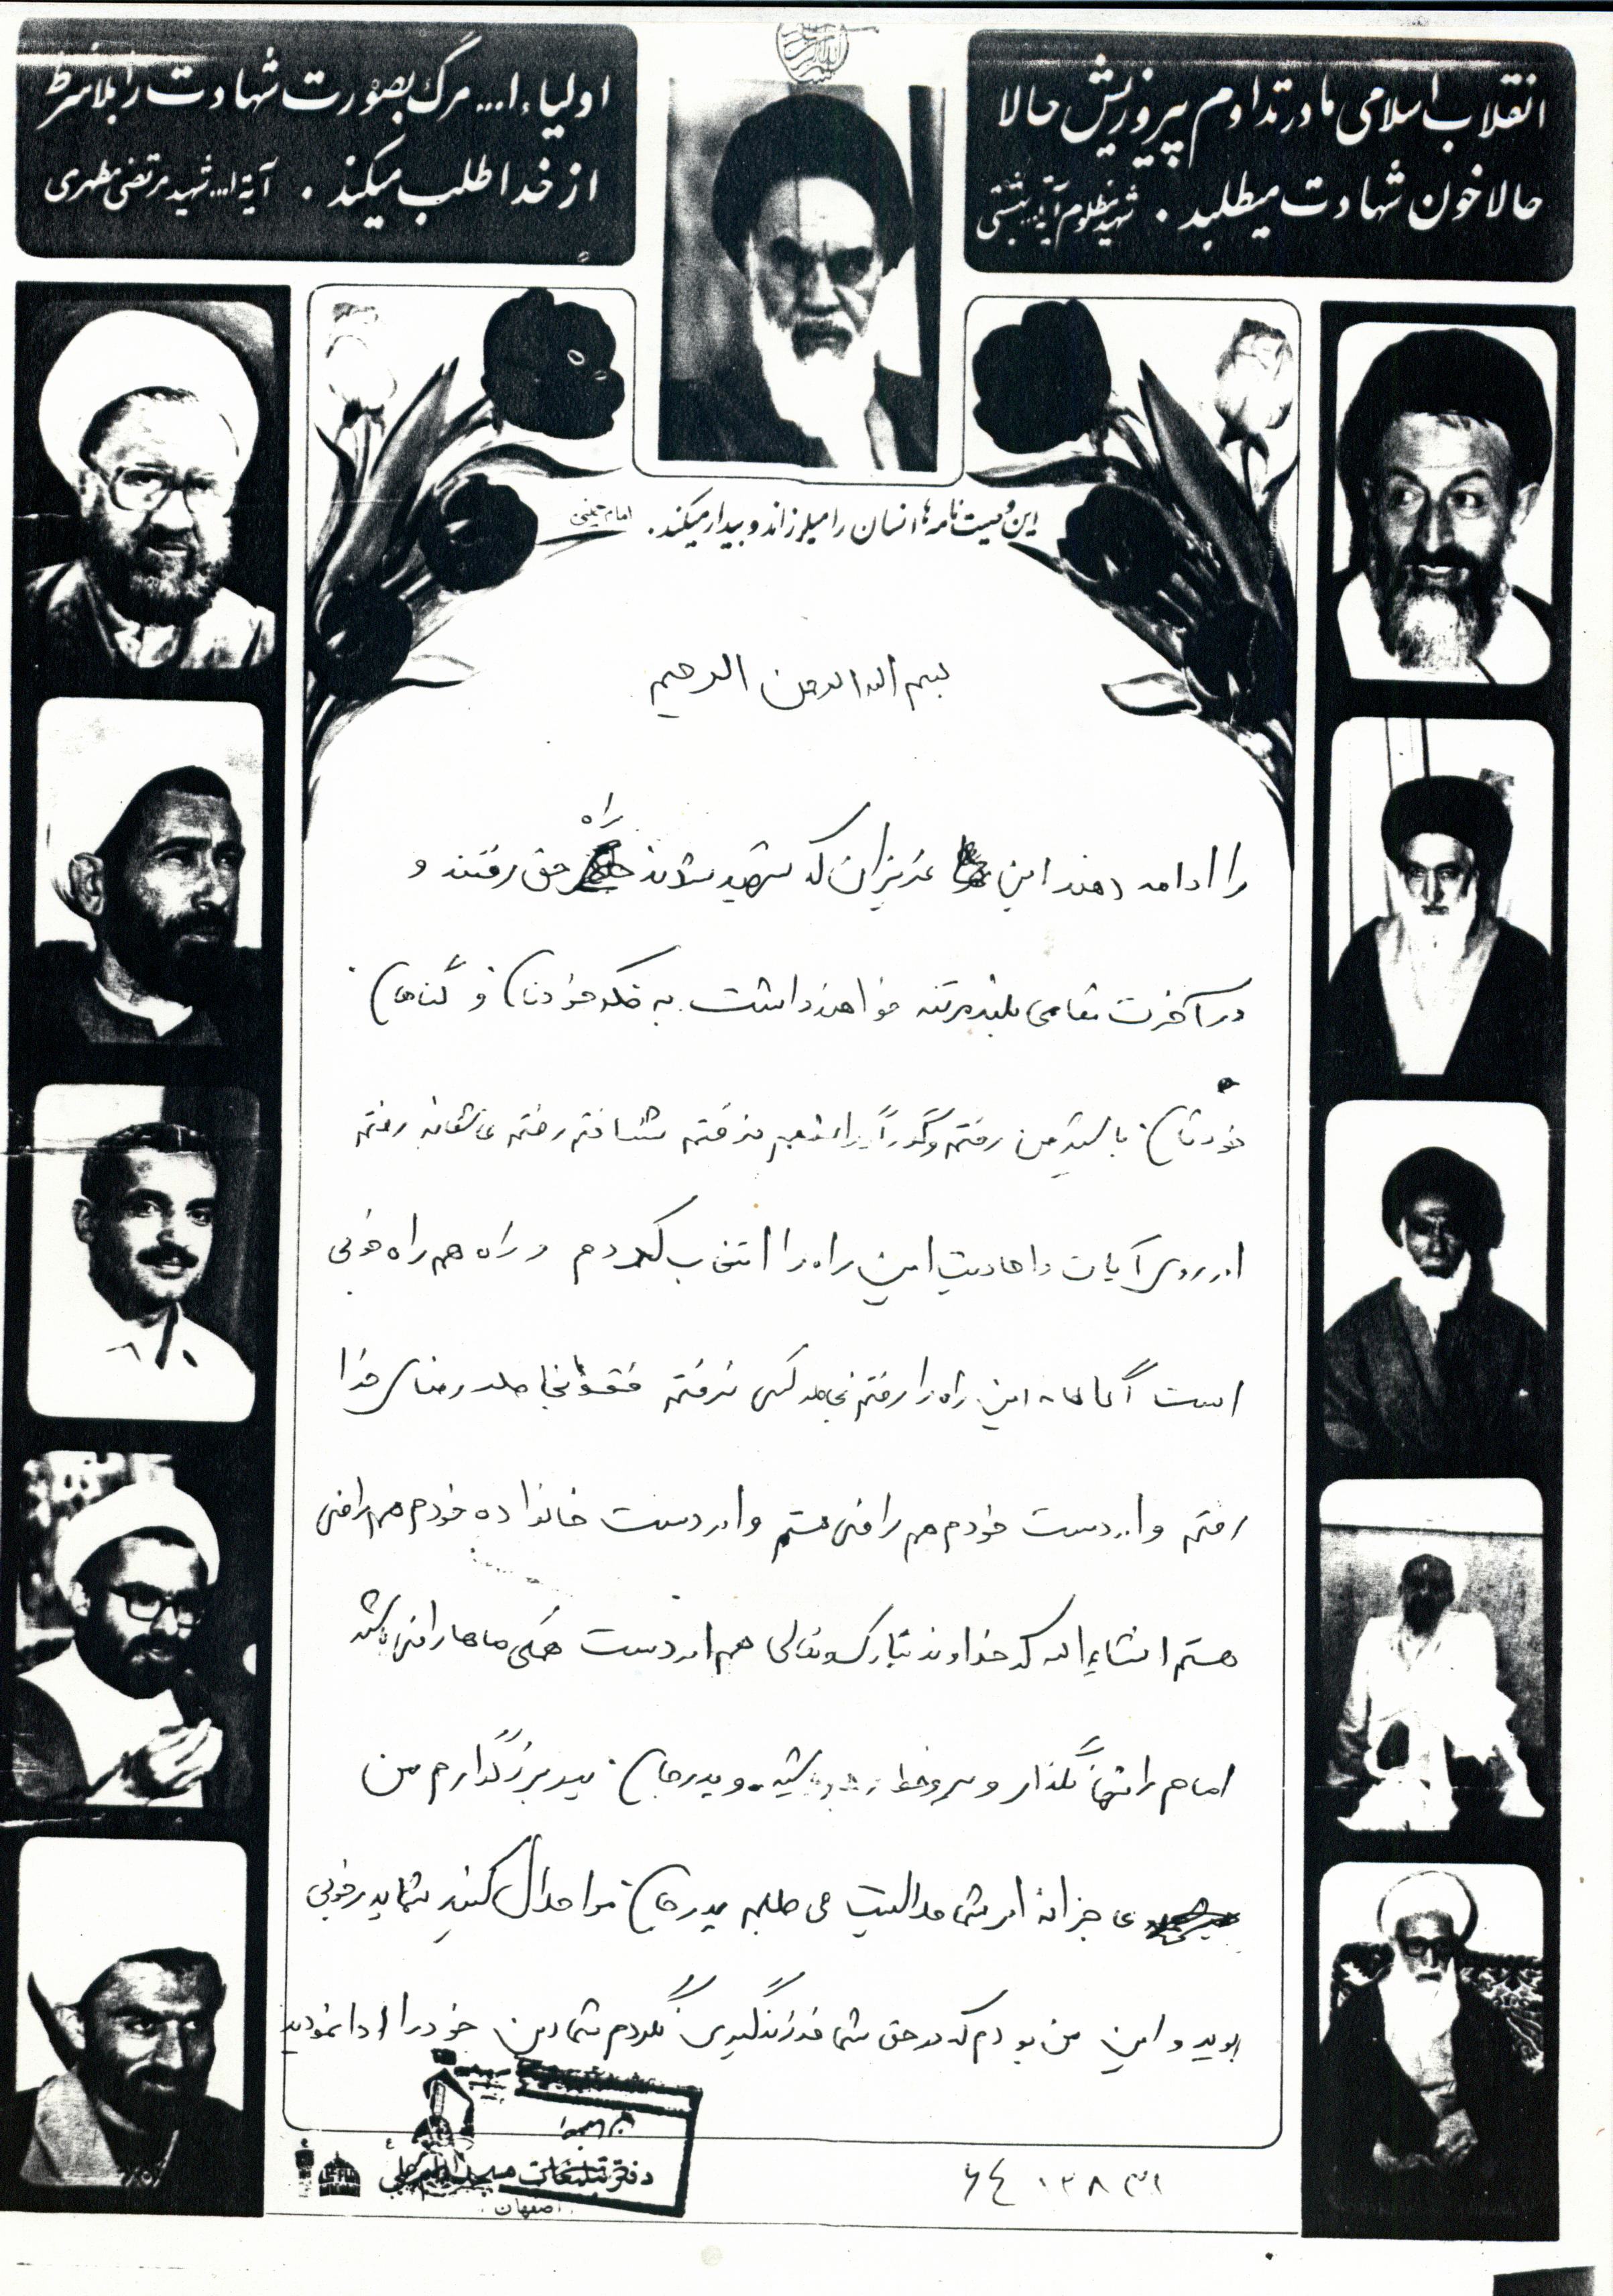 انقلاب اسلامی ما در تداوم پیروزیش حالا
حالا خون شهادت میطلبد . شهید مظلوم آیة... بهشتی
اولیاء ا... مرگ بصورت شهادت را بلاشرط
از خدا طلب میکند . آیة ا... شهید مرتضی مطهری
این وصیت نامه ها انسان را میلرزاند و بیدار میکند . امام خمینی
بسم الله الرحمن الرحیم
را ادامه دهند این عزیزان که شهید شدند راه حق رفتند و
در آخرت مقامی بلند مرتبه خواهند داشت به فکر خودتان و گناهان
خودتان باشید من رفتم نرفتم شناختم رفتم عاشقانه رفتم
از روی آیات و احادیث این راه را انتخاب کردم و راه هم راه خوبی
است آگاهانه این راه را رفتم بخاطر کسی نرفتم فقط بخاطر رضای خدا
رفتم و از دست خودم هم راضی هستم و از دست خانواده خودم هم راضی
هستم انشاءالله که خداوند تبارک و تعالی هم از دست همگی ماها راضی باشد
امام را تنها نگذار و پدرجان پدر بزرگوارم من
عاجزانه از شما حلالیت می طلبم پدرجان مرا حلال کنید شما پدر خوبی
بودید و این من بودم که در حق شما فرزندگیری نکردم شما دین خود را ادا نمودید
دفتر تبلیغات
اصفهان